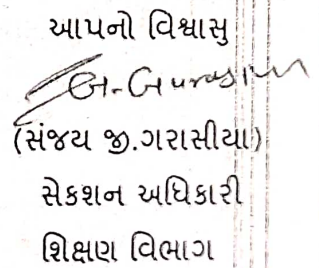 આપનો વિશ્વાસુ
(સંજય જી.ગરાસીયા)
સેકશન અધિકારી
શિક્ષણ વિભાગ